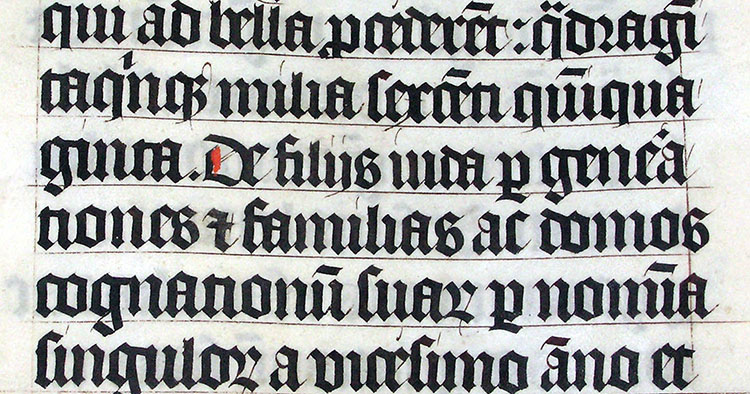 qui ad bella ꝓcederēt: q̄dragī
taqͥnqꝫ milia sexcēti quīqua
ginta. De filijs iuda ꝑ geneᷓa
tiones ⁊ familias ac domos
cognationū suaꝝ ꝑ nomīa
singuloꝝ a vicesimo āno et